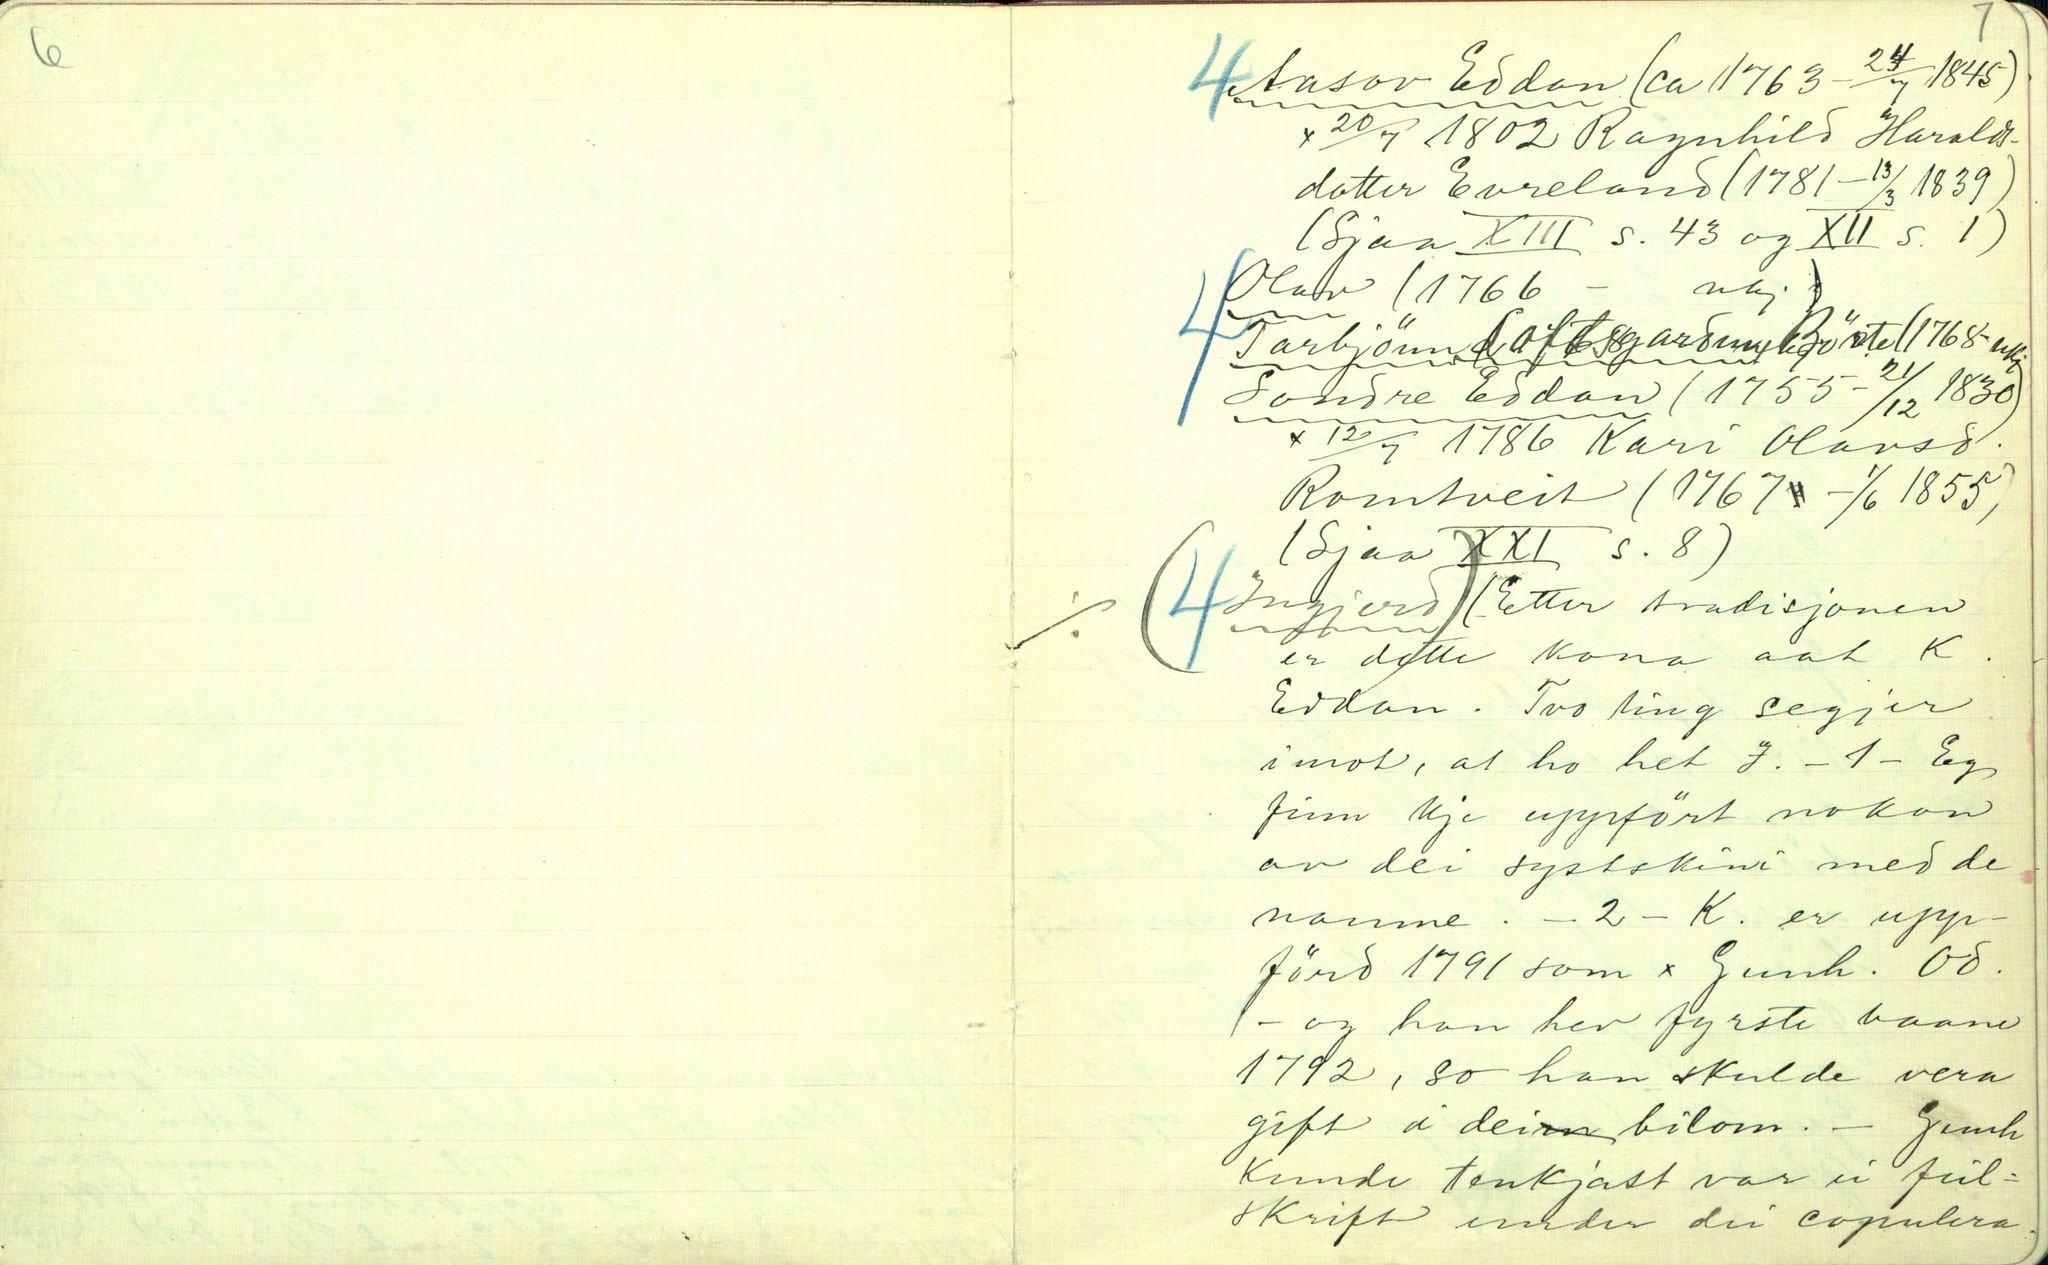 6
7
4 Aasov Eddan (ca 1763 - 24/7 1845)
x 20/7 1802 Ragnhild Haralds-
dotter Evreland (1781 - 13/3 1839)
(Sjaa XIII s. 43 og XII s. 1)
Olav (1766 -
4 Tarbjönn Loftsgarden, Böste (1768-
Sondre Eddan (1755 - 21/12 1830)
x 12/7 1786 Kari Olavsd.
Romtveit (1767 - 1/6 1855)
(Sjaa XXI s. 8)
÷ (4 Ingjerd) (Etter tradisjonen
er dette kona aat K.
Eddan. Tvo ting segjer
imot, at ho het I. - 1 - Eg
finn kje uppfört nokon
av dei systskini med de
namne. - 2 - K. er upp-
förd 1791 som x Gunh. Od.
- og han hev fyrste baane
1792, so han skulde vera
gift i dei bilom. - Gunh
kunde tenkjast var ei feil=
skrift under dei copulera